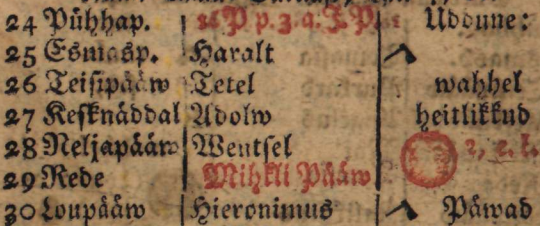 24 Pühhap. 16 P p. 3. a. J. P. Uddune:
25 Esmasp. Haralt
26 Teisipääw Tetel wahhel
27 Kesknäddal Adolw heitlikkud
28 Neljapääw Wentsel
29 Rede Mihkli Pääw
30 Loupääw Hieronimus Päwad